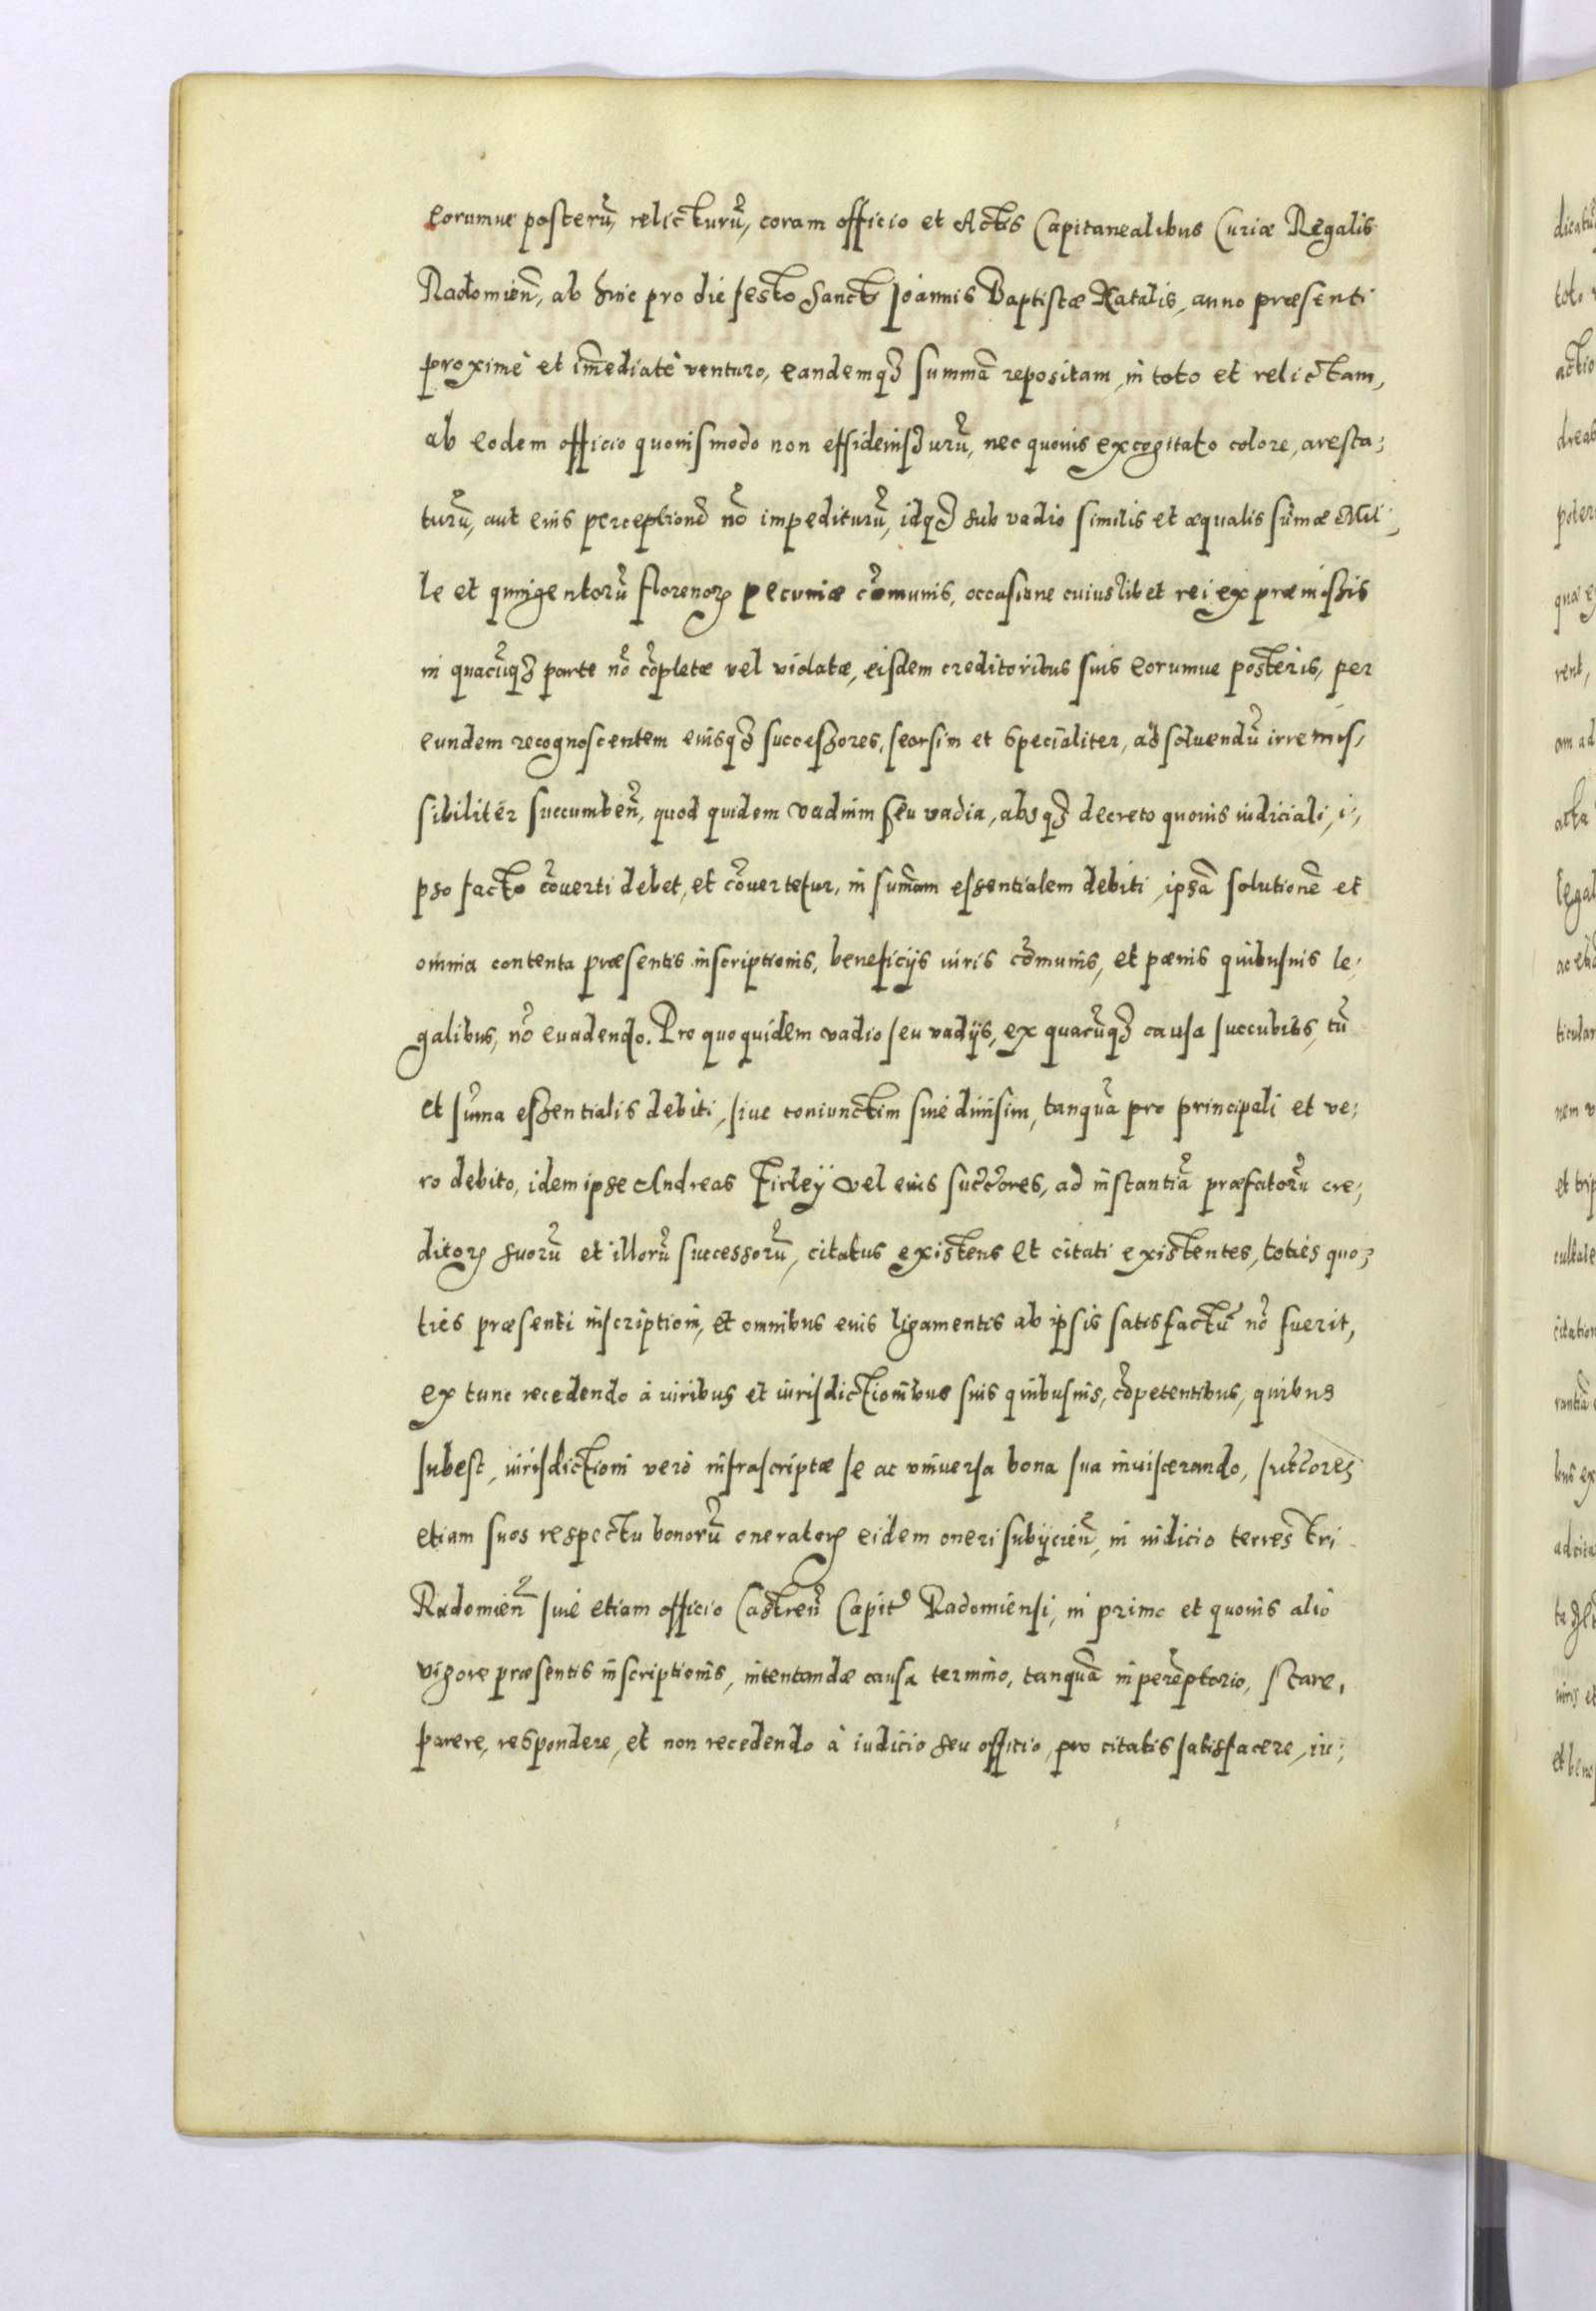 eorumue posterũ, relicturũ, coram officio et Actis Capitanealibus Curiæ Regalis
Radomieñ, ab hinc pro die festo Sancti Joannis Baptistæ Natalis, anno præsenti
proximè et im̃ediatè venturo, eandemqȝ summã repositam, in toto et relictam,
ab eodem officio quouismodo non, nec quouis excogitato colore, aresta-
turũ, aut eius perceptionẽ nõ impediturũ, idqȝ sub vadio similis et æqualis sum̃æ Mil-
le et quingentorũ florenoꝝ pecuniæ cõmunis, occasione cuiuslibet rei ex præmissis
in quacũqȝ parte nõ cõpletæ vel violatæ, eisdem creditoribus suis eorumue posteris, per
eundem recognoscentem eiusqȝ successores, seorsim et specialiter, ad soluendũ irremis-
sibiliter succumbeñ, quod quidem vadium seu vadia, absqȝ decreto quouis iudiciali, i-
pso facto cõuerti debet, et cõuertetur, in sum̃am essentialem debiti, ipsã solutionẽ et
omnia contenta præsentis inscriptionis, beneficijs iuris cõmunis, et pænis quibusuis le-
galibus, nõ euadendo. Pro quoquidem vadio seu vadijs, ex quacũqȝ causa succubitis, tũ
et sum̃a essentialis debiti, siue coniunctim siue diuisim, tanquã pro principali et ve-
ro debito, idem ipse Andreas Firleÿ vel eius succ̃ores, ad instantiã præfatorũ cre-
ditoꝝ suorũ et illorũ successorũ, citatus existens et citati existentes, toties quo-
ties præsenti inscriptioni, et omnibus eius ligamentis ab ipsis satisfactũ nõ fuerit,
ex tunc recedendo à iuribus et iurisdictionibus suis quibusuis, cõpetentibus, quibus
subest, iurisdictioni verò infrascriptæ se ac vniuersa bona sua inuiscerando, succ̃ores
etiam suos respectu bonorũ oneratoꝝ eidem oneri subijcieñ, in iudicio terrestri
Radomieñ siue etiam officio Castreñ Capit Radomiensi, in primo et quouis alio
vigore præsentis inscriptionis, intentandæ causæ termino, tanquã in perẽptorio, stare,
parere, respondere, et non recedendo à iudicio seu officio, pro citatis satisfacere, iu-